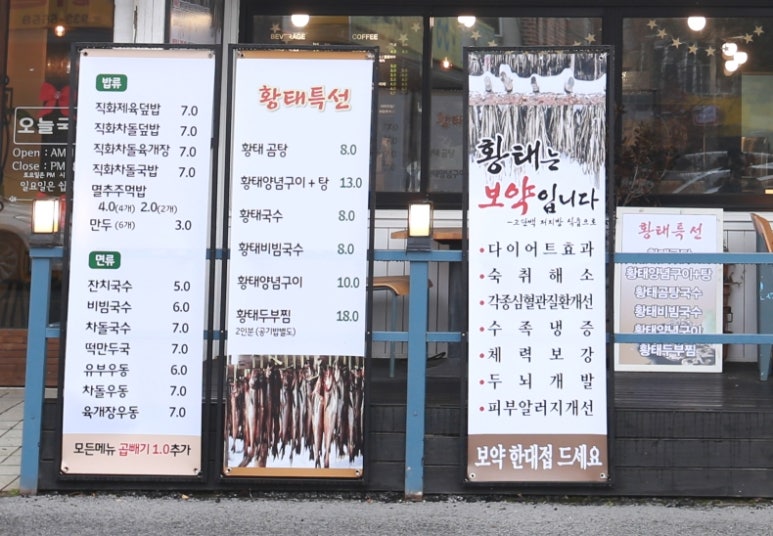 밥류
직화제육덮밥 7.0
직화차돌덮밥 7.0
직화차돌육개장 7.0
직화차돌국밥 7.0
멸추주먹밥
4.0(4개) 2.0(2개)
만두 (6개) 3.0
면류
잔치국수 5.0
비빔국수 6.0
차돌국수 7.0
떡만두국 7.0
유부우동 6.0
차돌우동 7.0
육개장우동 7.0
모든메뉴 곱빼기 1.0추가
황태특선
황태 곰탕 8.0
황태양념구이+탕 13.0
황태국수 8.0
황태비빔국수 8.0
황태양념구이 10.0
황태두부찜 18.0
2인분(공기밥별도)
황태는
보약입니다
-고단백 저지방 식품으로
•다이어트효과
•숙취해소
•각종심혈관질환개선
•수족냉증
•체력보강
•두뇌개발
•피부알러지개선
보약 한대접 드세요
황태특선
황태곰탕
황태양념구이+탕
황태곰탕국수
황태비빔국수
황태양념구이
황태두부찜
BEVERAGE
COFFEE
오늘국
Open : AM
Close : PM
일요일은 쉽